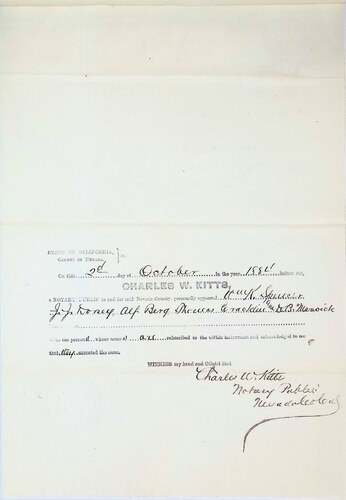 STATE OF CALIFORNIA,
COUNTY OF NEVADA. } ss.
On this 2d day of October in the year 1884 before me,
CHARLES W. KITTS,
a NOTARY PUBLIC in and for said Nevada County, personally appeared Wm K. Spencer
J. J. Dorsey Alf Berg Thomas & D. B. Merwick
to be the persons whose names are subscribed to the within instrument and acknowledged to me
that they executed the same.
WITNESS my hand and Official Seal.
Charles W. Kitts
Notary Public
Nevada Co Cal